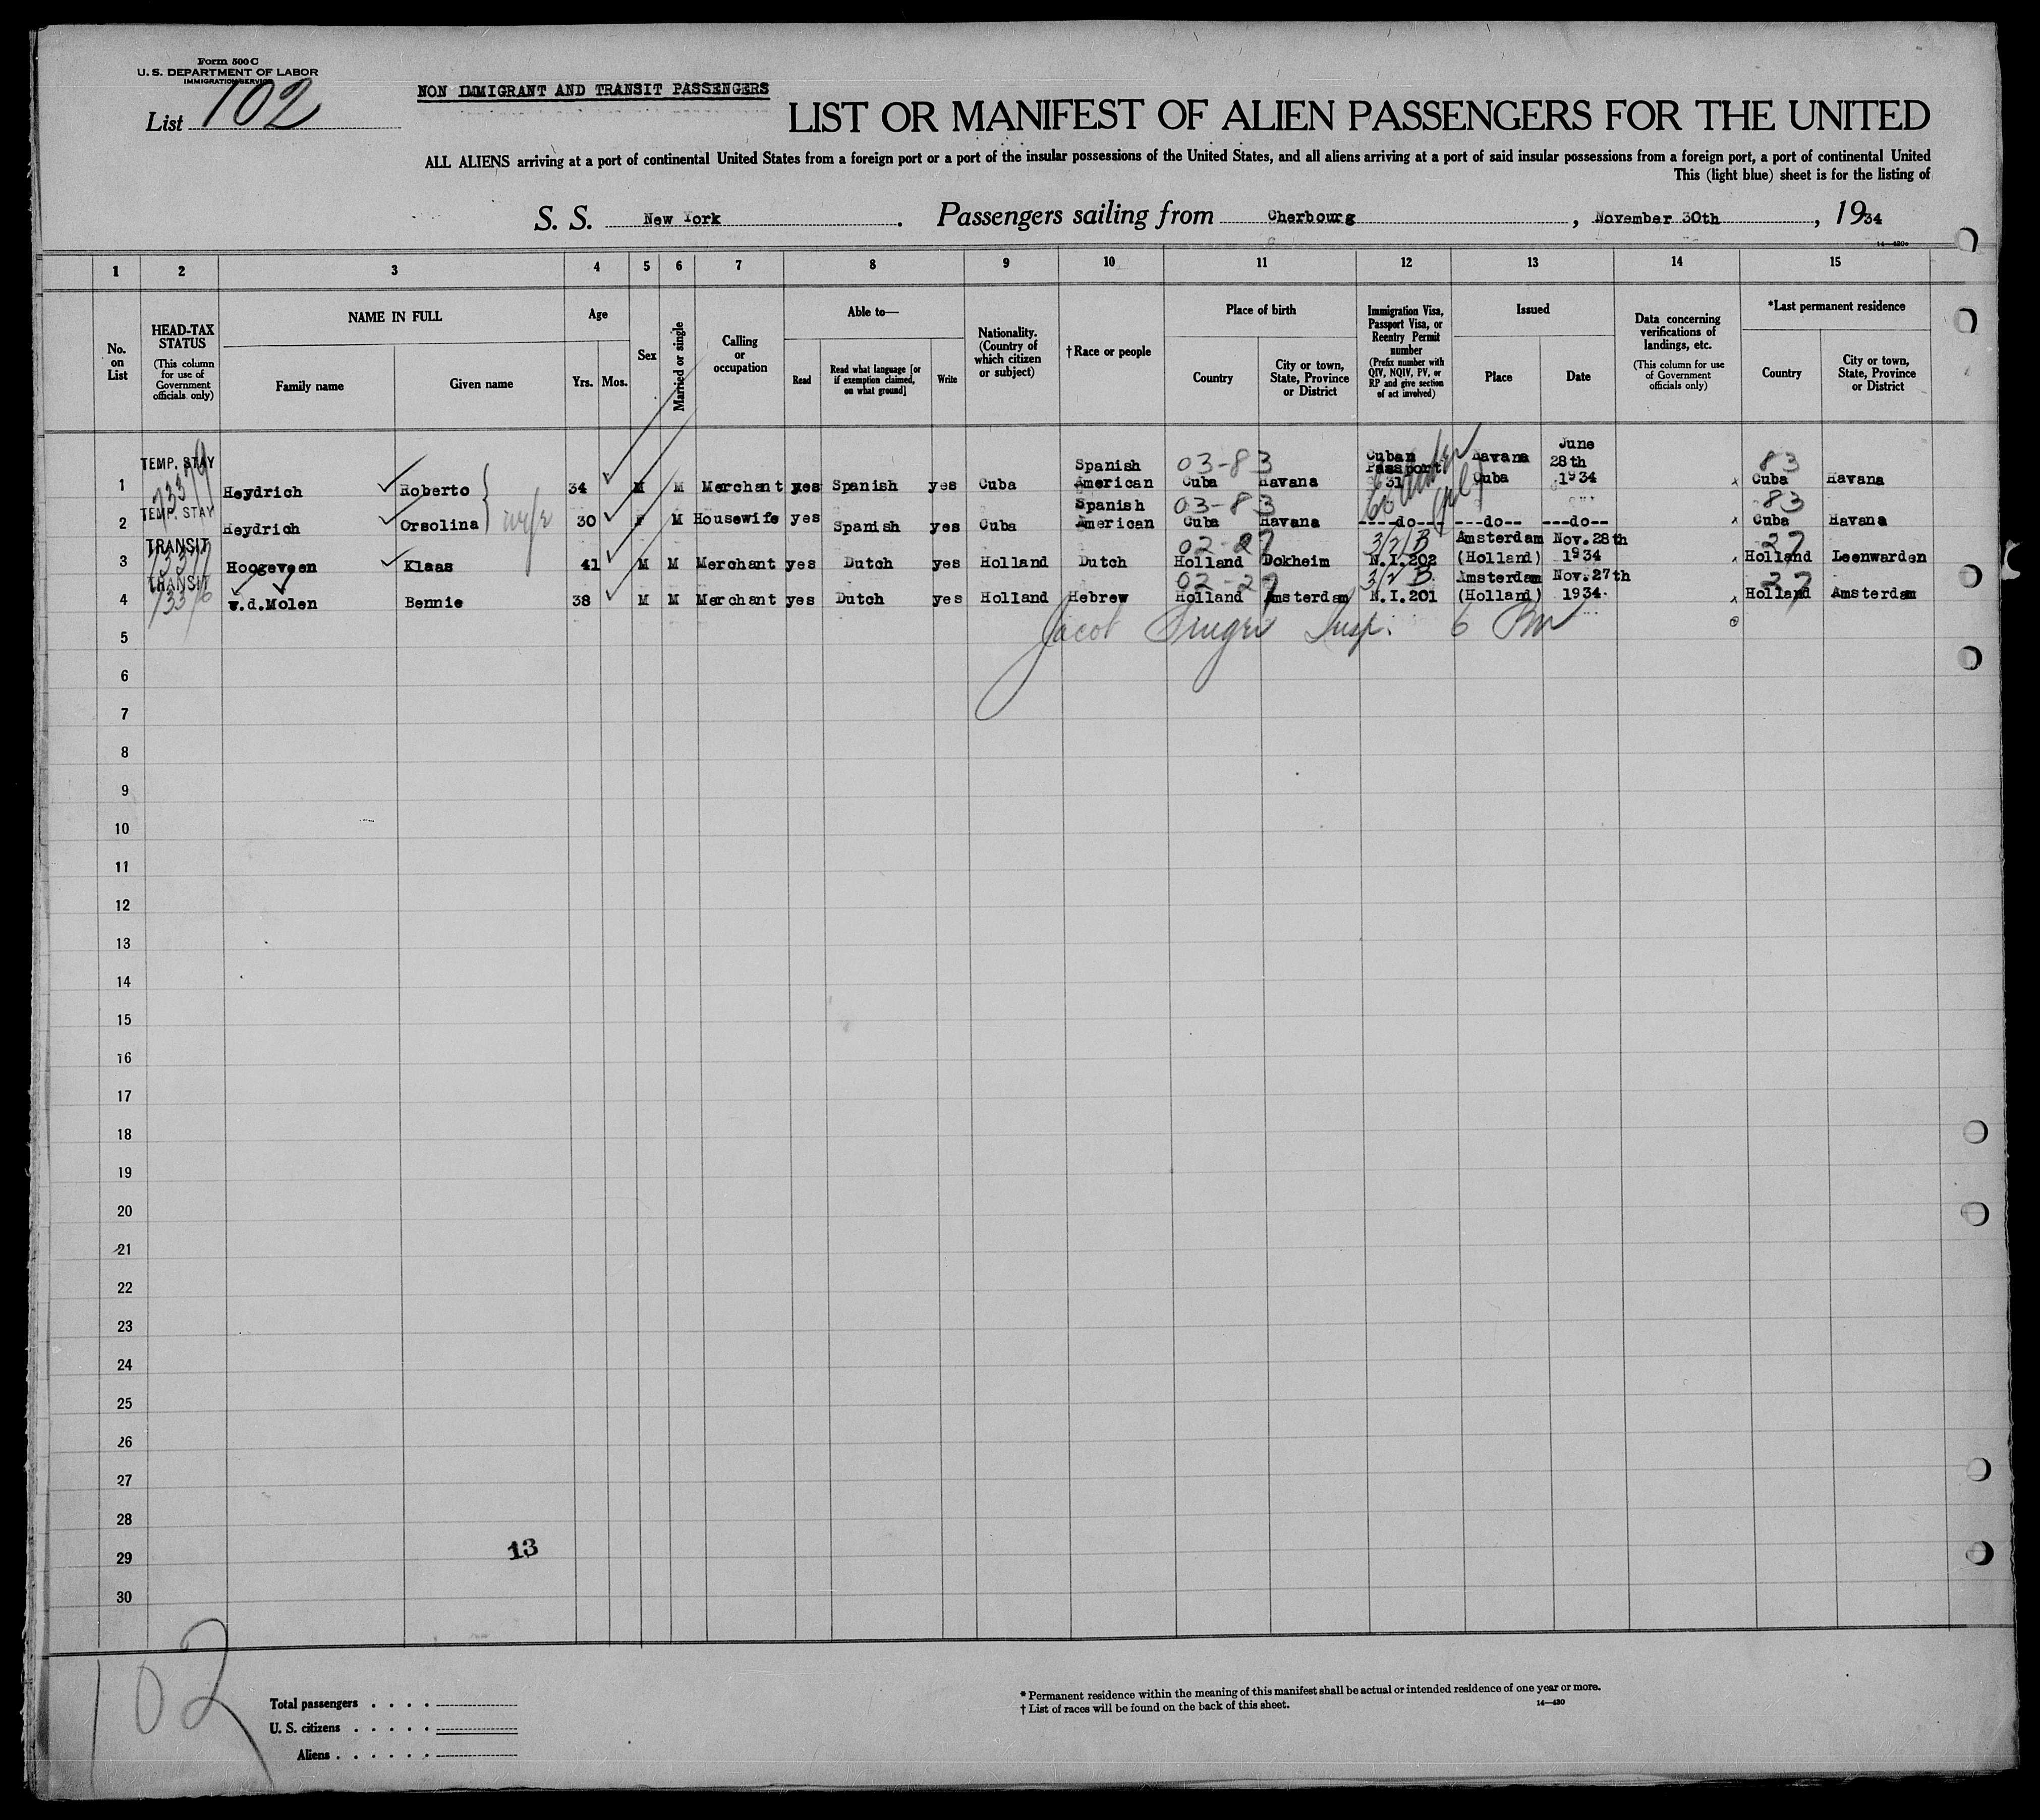 Form 500 C
U. S. DEPARTMENT OF LABOR
IMMIGRATION SERVICE
List 102
NON IMMIGRANT AND TRANSIT PASSENGERS
LIST OR MANIFEST OF ALIEN PASSENGERS FOR THE UNITED
ALL ALIENS arriving at a port of continental United States from a foreign port or a port of the insular possessions of the United States, and all aliens arriving at a port of said insular possessions from a foreign port, a port of continental United
This (light blue) sheet is for the listing of
S. S. New York. Passengers sailing from Cherbourg, November 30th, 1934
1 2 3 4 5 6 7 8 9 10 11 12 13 14 15
No. on List
HEAD-TAX STATUS (This column for use of Government officials only)
NAME IN FULL
Family name
Given name
Age
Yrs.
Mos.
Sex
Married or single
Calling or occupation
Able to—
Read
Read what language [or if exemption claimed, on what ground]
Write
Nationality. (Country of which citizen or subject)
†Race or people
Place of birth
Country
City or town, State, Province or District
Immigration Visa, Passport Visa, or Reentry Permit number (Prefix number with QIV, NQIV, PV, or RP and give section of act involved)
Issued
Place
Date
Data concerning verifications of landings, etc. (This column for use of Government officials only)
*Last permanent residence
Country
City or town, State, Province or District
1 TEMP. STAY Heydrich Roberto 34 M M Merchant yes Spanish yes Cuba Spanish American 03-83 Cuba Havana Cuban Passport Havana Cuba June 28th 1934 83 Cuba Havana
2 TEMP. STAY Heydrich Orsolina wife 30 F M Housewife yes Spanish yes Cuba Spanish American 03-83 Cuba Havana ----do--- ---do-- ---do-- 83 Cuba Havana
3 TRANSIT Hoogeveen Klaas 41 M M Merchant yes Dutch yes Holland Dutch 02-27 Holland Dokheim 3/2/B N.I.202 Amsterdam (Holland) Nov.28th 1934 27 Holland Leenwarden
4 TRANSIT W.d.Molen Bennie 38 M M Merchant yes Dutch yes Holland Hebrew 02-27 Holland Amsterdam 3/2 B N.I.201 Amsterdam (Holland) Nov.27th 1934. 27 Holland Amsterdam
5 Jacob Singer Insp. 6
6
7
8
9
10
11
12
13
14
15
16
17
18
19
20
21
22
23
24
25
26
27
28
29
13
30
102
Total passengers . . . .
U. S. citizens . . . . .
Aliens . . . . . .
* Permanent residence within the meaning of this manifest shall be actual or intended residence of one year or more.
† List of races will be found on the back of this sheet.
14—430